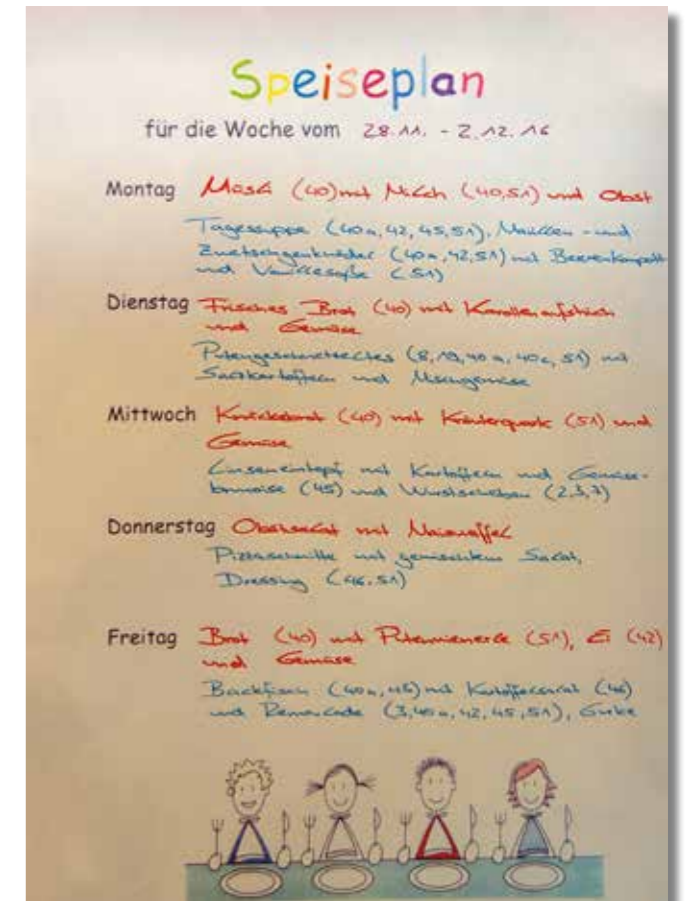 Speiseplan
für die Woche vom 28.11. - 2.12.16
Montag Müsli (40) mit Milch (40,51) und Obst
Tagessuppe (40a,42,45,51), Marillen- und
Zwetschgenknödel (40a,42,51) mit Beerenkompott
und Vanillesoße (51)
Dienstag Frisches Brot (40) mit Karottenaufstrich
und Gemüse
Putengeschnetzeltes (8,19,40a,40c,51) mit
Salzkartoffeln und Mischgemüse
Mittwoch Knäckebrot (40) mit Kräuterquark (51) und
Gemüse
Linseneintopf mit Kartoffeln und Gemüse-
brunoise (45) und Wurstscheiben (2,3,7)
Donnerstag Obstsalat mit Maiswaffel
Pizzaschnitte mit gemischtem Salat,
Dressing (46,51)
Freitag Brot (40) mit Putenwienerle (51), Ei (42)
und Gemüse
Backfisch (40a,45) mit Kartoffelsalat (46)
und Remoulade (3,40a,42,45,51), Gurke